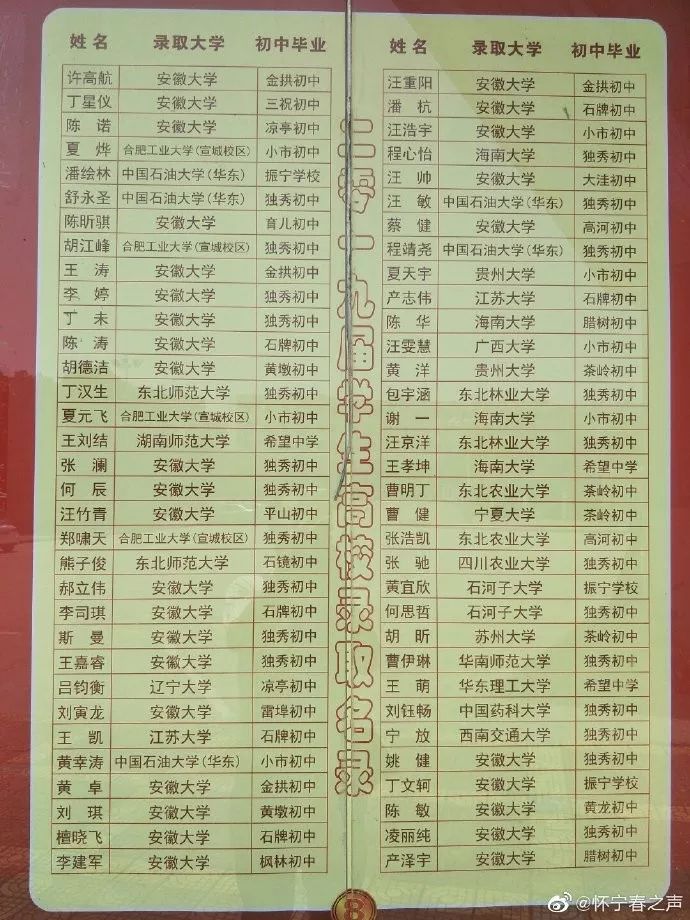 姓名 录取大学 初中毕业
许高航 安徽大学 金拱初中
丁星仪 安徽大学 三祝初中
陈诺 安徽大学 凉亭初中
夏烨 合肥工业大学(宣城校区) 小市初中
潘绘林 中国石油大学(华东) 振宁学校
舒永圣 中国石油大学(华东) 独秀初中
陈昕骐 安徽大学 育儿初中
胡江峰 合肥工业大学(宣城校区) 独秀初中
王涛 安徽大学 金拱初中
李婷 安徽大学 独秀初中
丁未 安徽大学 独秀初中
陈涛 安徽大学 石牌初中
胡德洁 安徽大学 黄墩初中
丁汉生 东北师范大学 独秀初中
夏元飞 合肥工业大学(宣城校区) 小市初中
王刘结 湖南师范大学 希望中学
张澜 安徽大学 独秀初中
何辰 安徽大学 独秀初中
汪竹青 安徽大学 平山初中
郑啸天 合肥工业大学(宣城校区) 独秀初中
熊子俊 东北师范大学 石镜初中
郝立伟 安徽大学 独秀初中
李司琪 安徽大学 石牌初中
斯曼 安徽大学 独秀初中
王嘉睿 安徽大学 独秀初中
吕钧衡 辽宁大学 凉亭初中
刘寅龙 安徽大学 雷埠初中
王凯 江苏大学 石牌初中
黄幸涛 中国石油大学(华东) 小市初中
黄卓 安徽大学 金拱初中
刘琪 安徽大学 黄墩初中
檀晓飞 安徽大学 石牌初中
李建军 安徽大学 枫林初中
二零一九届学生高校录取名录
姓名 录取大学 初中毕业
汪重阳 安徽大学 金拱初中
潘杭 安徽大学 石牌初中
汪浩宇 安徽大学 小市初中
程心怡 海南大学 独秀初中
汪帅 安徽大学 大洼初中
汪敏 中国石油大学(华东) 独秀初中
蔡健 安徽大学 高河初中
程靖尧 中国石油大学(华东) 独秀初中
夏天宇 贵州大学 小市初中
产志伟 江苏大学 石牌初中
陈华 海南大学 腊树初中
汪雯慧 广西大学 小市初中
黄洋 贵州大学 茶岭初中
包宇涵 东北林业大学 独秀初中
谢一 海南大学 小市初中
汪京洋 东北林业大学 独秀初中
王孝坤 海南大学 希望中学
曹明丁 东北农业大学 茶岭初中
曹健 宁夏大学 茶岭初中
张浩凯 东北农业大学 高河初中
张驰 四川农业大学 独秀初中
黄宜欣 石河子大学 振宁学校
何思哲 石河子大学 独秀初中
胡昕 苏州大学 茶岭初中
曹伊琳 华南师范大学 独秀初中
王萌 华东理工大学 希望中学
刘钰畅 中国药科大学 独秀初中
宁放 西南交通大学 独秀初中
姚健 安徽大学 独秀初中
丁文轲 安徽大学 振宁学校
陈敏 安徽大学 黄龙初中
凌丽纯 安徽大学 独秀初中
产泽宇 安徽大学 腊树初中
8
@怀宁春之声